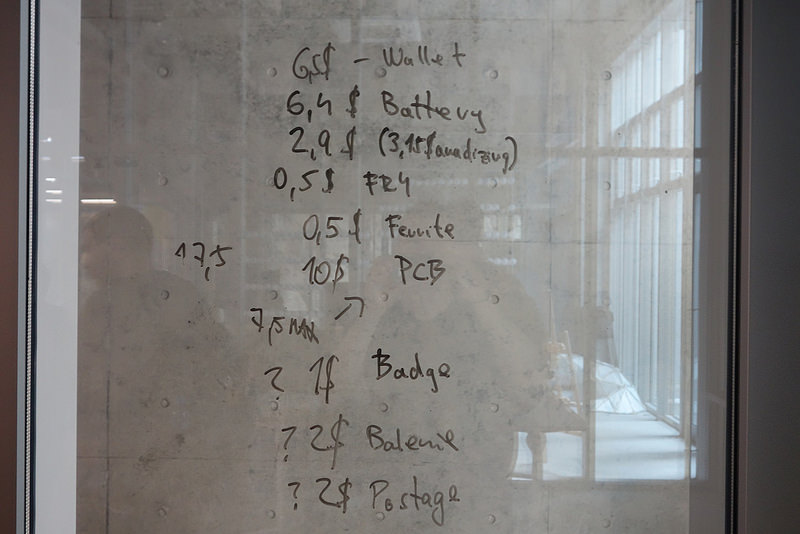 6,5$ - Wallet
6,4 $ Battery
2,9 $ (3,15$ anadizing)
0,5$ FR4
0,5 $ Ferrite
17,5 10$ PCB
7,5 MAX ↗
? 1$ Badge
? 2$ Balenie
? 2$ Postage